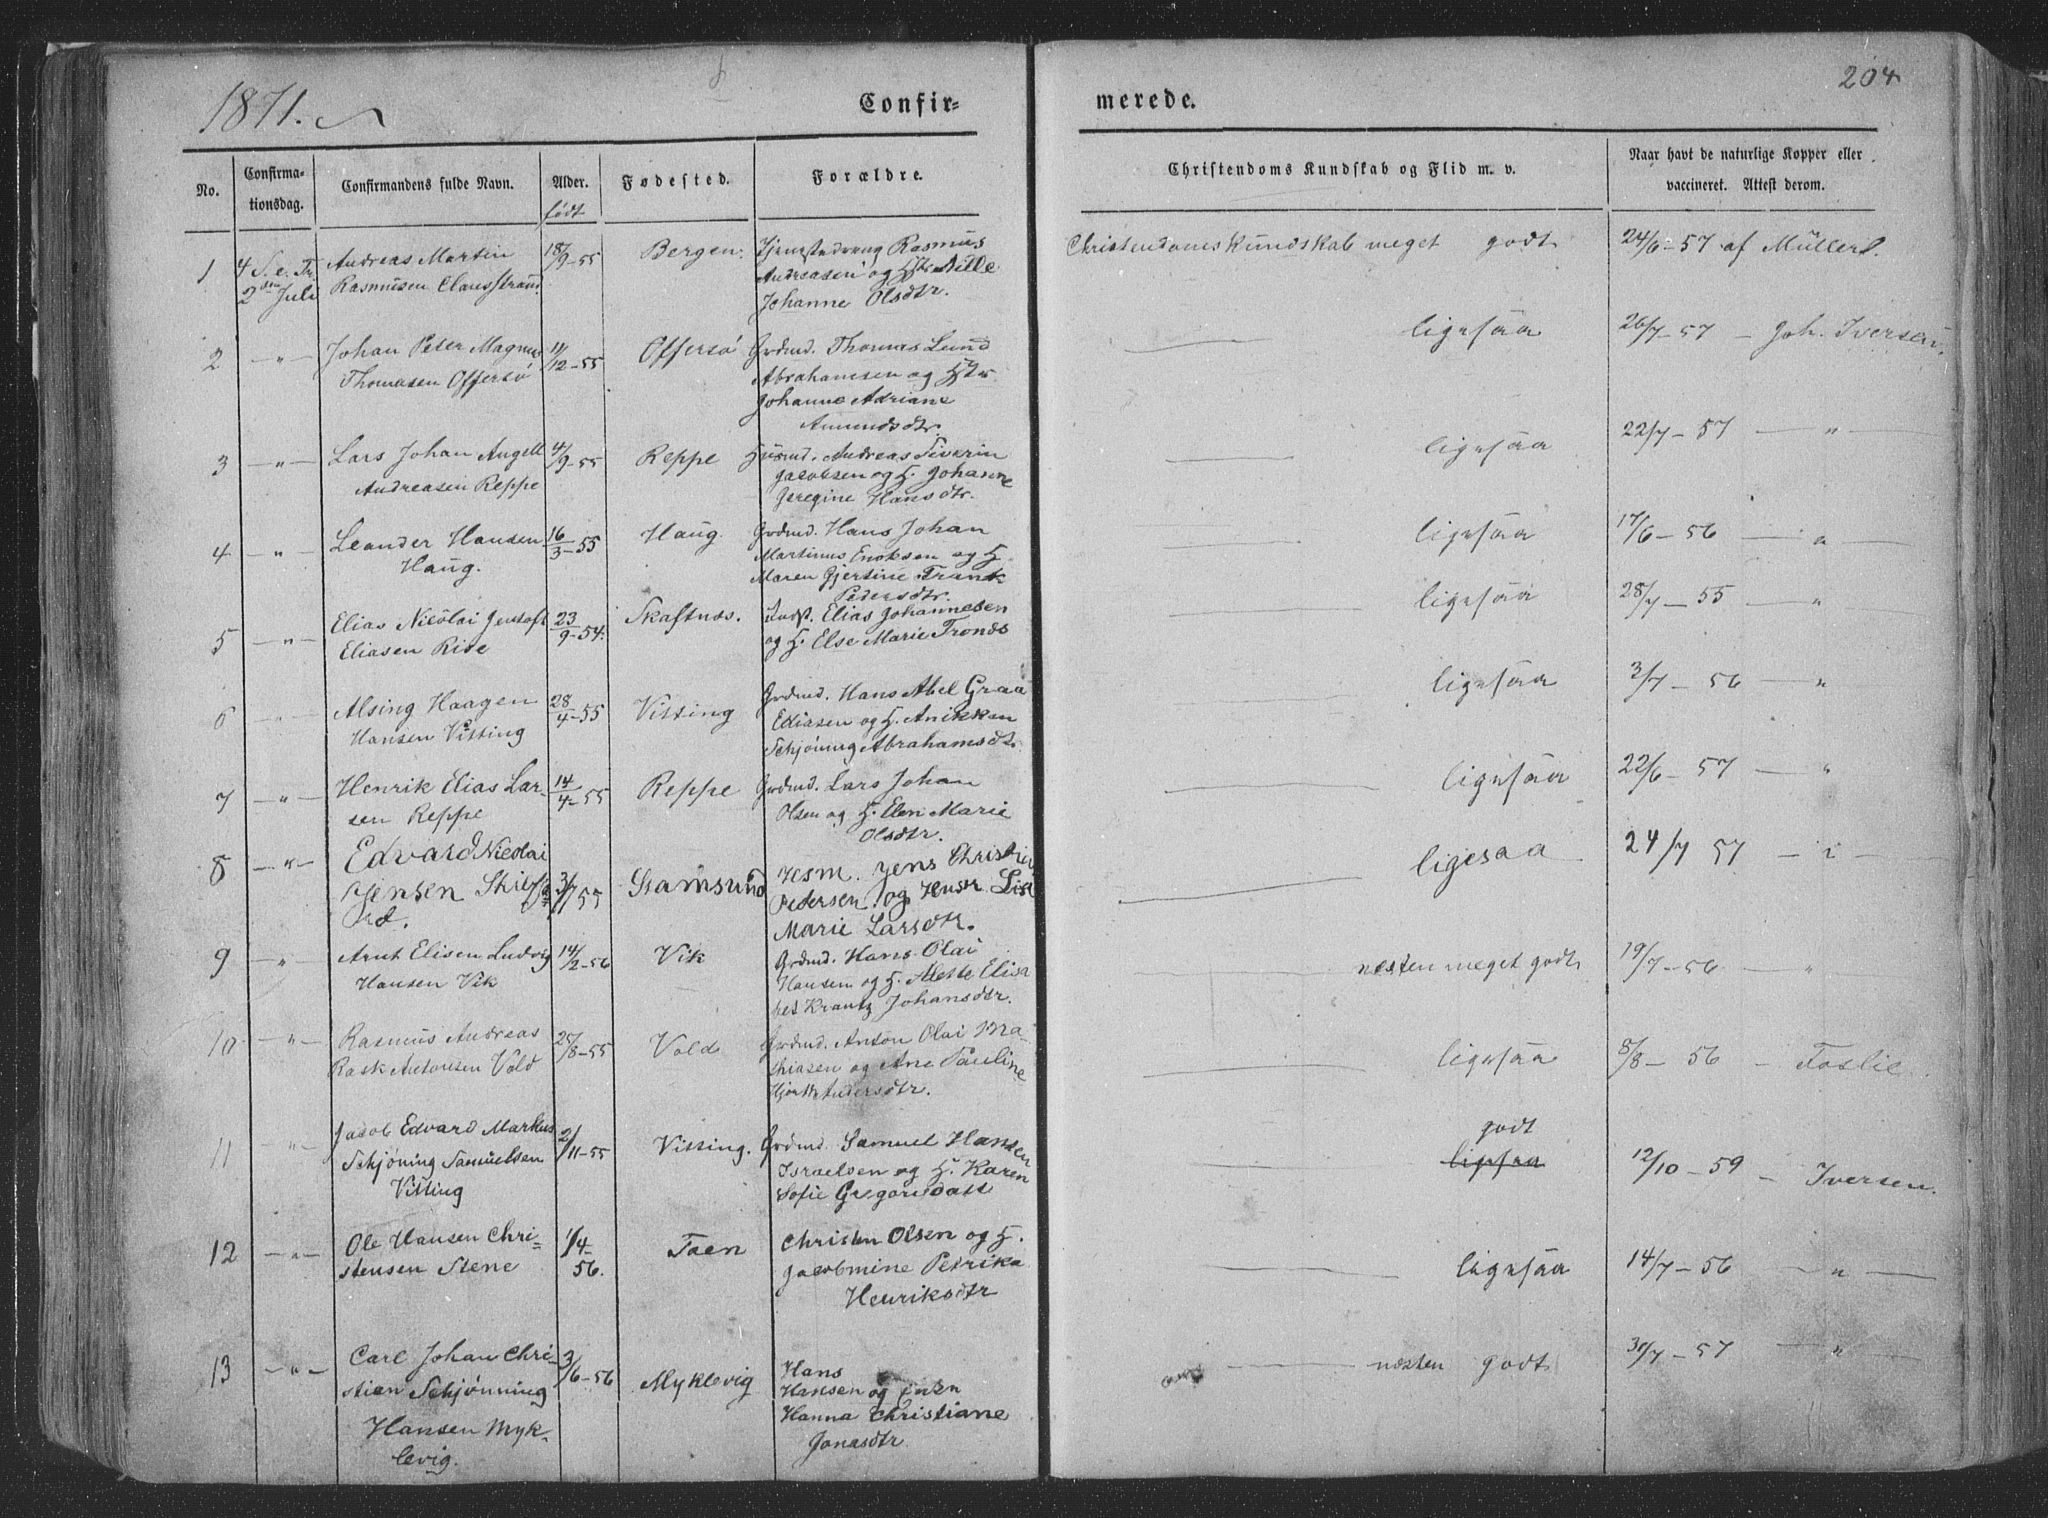 1871.
Confir=
merede.
204
No.
Confirma-
tionsdag.
Confirmandens fulde Navn.
Alder.
født
Fødested.
Forældre.
Christendoms Kundskab og Flid m. v.
Naar havt de naturlige Kopper eller
vaccineret. Attest derom.
1
4 S. e. Tr.
2den Juli
Andreas Martin
Rasmusen Clausstrand
18/9-55
Bergen.
Tjenestedreng Rasmus
Andreasen og Hstr
Johanne Olsdtr.
Christendomskundskab meget godt
24/6-57 af Müller
2
-"-
Johan Peter Magnus
Thomasen Offersø
11/12-55
Offersø
Grdmd. Thomas Lund
Abrahamsen og Hstr
Johanne Adriane
Amundsdtr.
ligesaa
26/7-57 - Joh. Iversen.
3
-"-
Lars Johan Angell
Andreasen Reppe
4/9-55
Reppe
Husmd. Andreas Severin
Jacobsen og H. Johanne
Jeregine Hansdtr.
ligesaa
22/7-57 - " -
4
-"-
Leander Hansen
Haug.
16/3-55
Haug.
Grdmd. Hans Johan
Martinus Enoksen og H.
Maren Gjertine Trank
Pedersdtr.
ligesaa
17/6-56 - " -
5
-"-
Elias Nicolai Gustaf
Eliasen Rise
23/9-54.
Skaftnæs.
Indst. Elias Johannesen
og H. Else Marie Tronds
ligesaa
28/7-55 - "
6
-"-
Alsing Haagen
Hansen Vitting
28/4-55
Vitting
Grdmd. Hans Abel Graa
Eliasen og H. Anikken
Schjøning Abrahamsdtr.
ligesaa
3/7-56 - "
7
-"-
Henrik Elias Lar-
sen Reppe
14/4-55
Reppe
Grdmd. Lars Johan
Olsen og H. Elen Marie
Olsdtr.
ligesaa
22/6-57 - "
8
-"-
Edvard Nicolai
Jensen
3/7 55
Stamsund
Hsm. Jens Christian
Pedersen og Hustr
Marie Larsdtr.
ligesaa
24/7 57 - " -
9
-"-
Arnt Elisen Ludvig
Hansen Vik
14/2-56
Vik
Grdmd. Hans Olai
Hansen og H. Mette Elisa
bet Krantz Johansdtr.
næsten meget godt
19/7-56 - "
10
-"-
Rasmus Andreas
Rask Antonsen Vold
25/8-55
Vold
Grdmd. Anton Olai Ma-
thiasen og Ane Pauline
Hjorth Andersdtr.
ligesaa
8/8-56 - Foslie
11
-"-
Jacob Edvard Markus
Schjøning Samuelsen
Vitting
2/11-55
Vitting.
Grdmd. Samuel Hansen
Israelsen og H. Karen
Sofie Gregoriedatt
godt
ligesaa
12/10-59 - Iversen.
12
-"-
Ole Hansen Chri-
stensen Stene
1/4-
56.
Taen
Christen Olsen og H.
Jacobmine Petrika
Henriksdtr
ligesaa
14/7-56 - " -
13
-"-
Carl Johan Chri-
stian Schjønning
Hansen Myk-
levig.
3/6-56
Myklevig
Hans
Hansen og
Hanna Christiane
Jonasdtr
næsten godt
30/7-57 - "